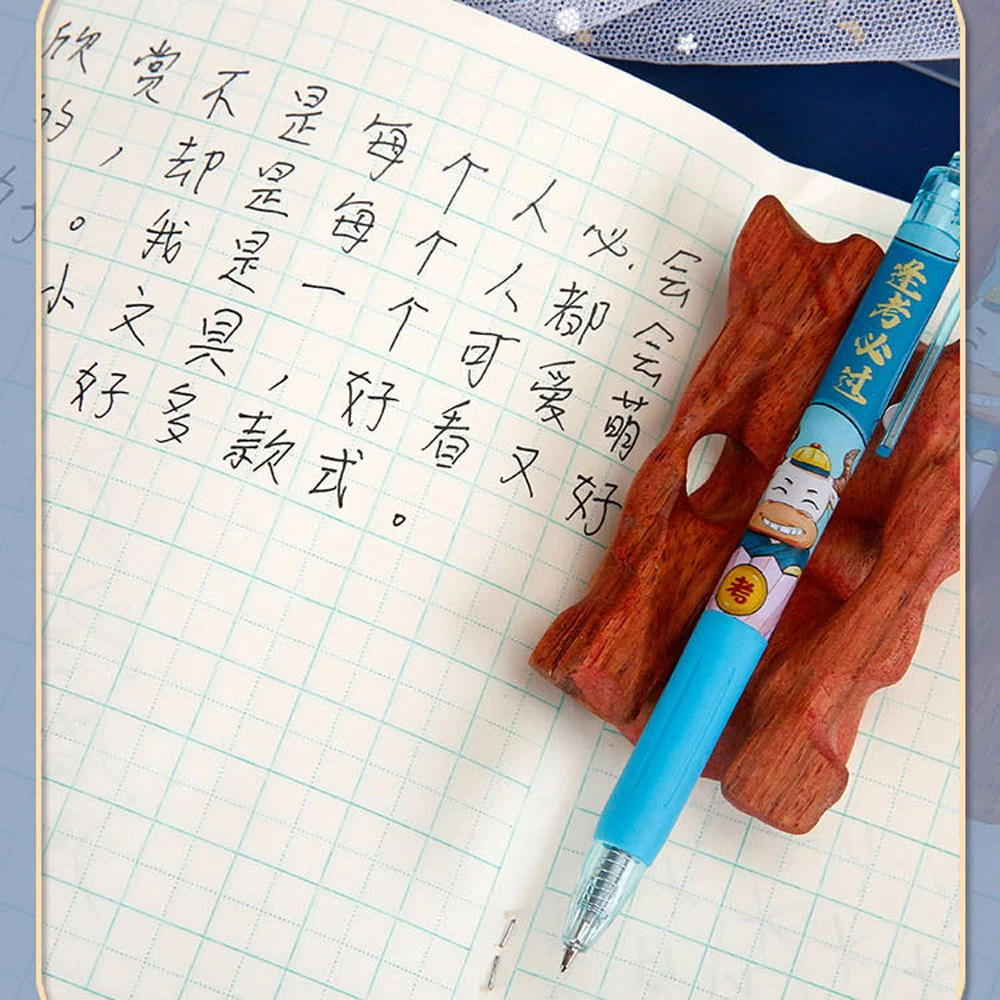 欣赏不是每个人必会
的，却是每个人都会
。我是一个可爱萌
小文具，好看又好
好多款式。
逢考必过
考